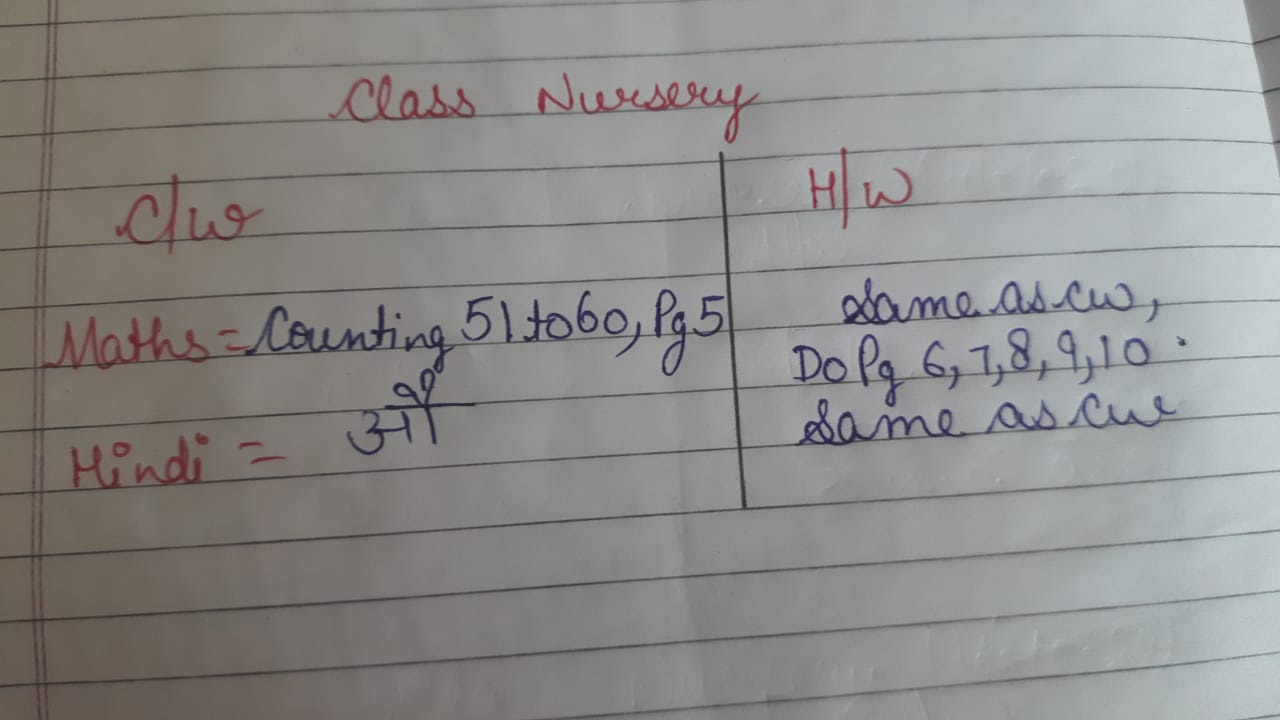 Class Nursery
C/w
H/W
Maths = Counting 51 to 60, Pg 5
Same as cw,
Do Pg 6, 7, 8, 9, 10.
Hindi =
Same as cw